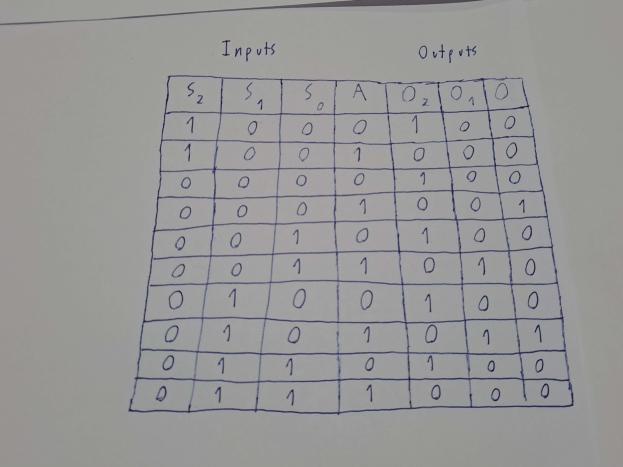 Inputs Outputs
S₂ S₁ S₀ A O₂ O₁ O
1 0 0 0 1 0 0
1 0 0 1 0 0 0
0 0 0 0 1 0 0
0 0 0 1 0 0 1
0 0 1 0 1 0 0
0 0 1 1 0 1 0
0 1 0 0 1 0 0
0 1 0 1 0 1 1
0 1 1 0 1 0 0
0 1 1 1 0 0 0